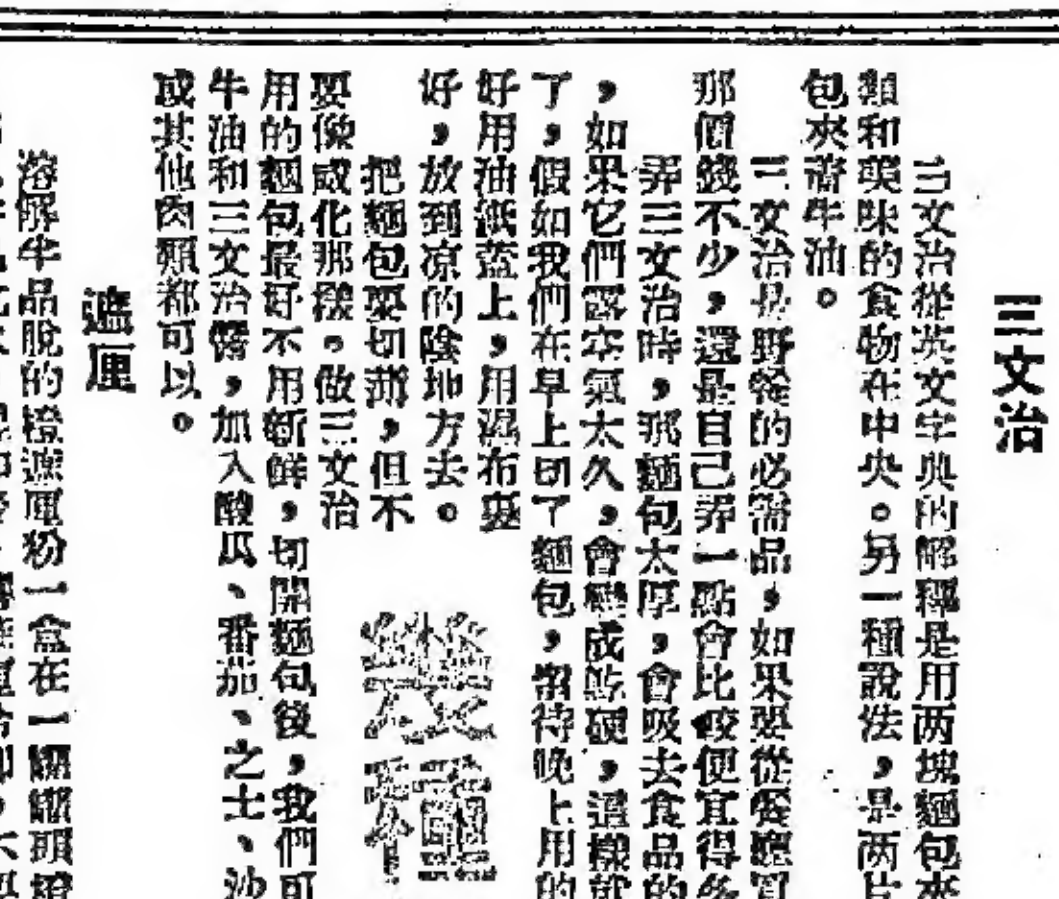 三文治
三文治從英文字典的解釋是用两塊麵包夾
類和美味的食物在中央。另一種說法，是两片
包夾著牛油。
三文治是野餐的必需品，如果要從餐廳買
那價錢不少，還是自己弄一點會比較便宜得多
弄三文治時，麵包太厚，會吸去食品的
，如果它們露空氣太久，會變成乾硬，這樣就
了，假如我們在早上切了麵包，留待晚上用的
好用油紙蓋上，用濕布裹
好，放到凉的陰地方去。
把麵包要切薄，但不
要像或化那樣。做三文治
用的麵包最好不用新鮮，切開麵包後，我們可
牛油和三文治醬，加入酸瓜、番茄、之士、沙
或其他肉類都可以。
遮厘
溶解半品脫的橙遮厘粉一盒在一罐罐頭橙